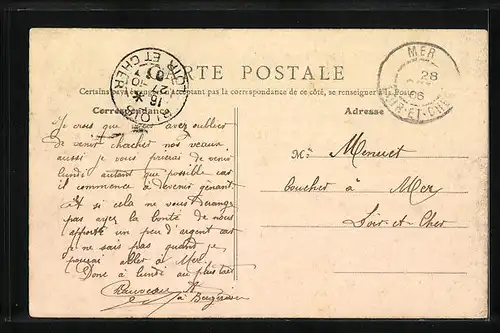 CARTE POSTALE
Certains pays étrangers n'acceptant pas la correspondance de ce côté, se renseigner à la Poste
Correspondance
Adresse
MER
28
06
LOIR-ET-CHER
BLOIS
LOIR ET CHER
Je crois que vous avez oublier
de venir chercher nos veaux
aussi je vous prierai de venir
lundi autant que possible car
il commence à devenir gênant
Et si cela ne vous derange
pas ayez la bonté de nous
apporté un peu d'argent car
je ne sais pas quand je
pourai aller à Mer.
Donc à lundi au plus tard
Mr Menuet
boucher à Mer
Loir-et-Cher